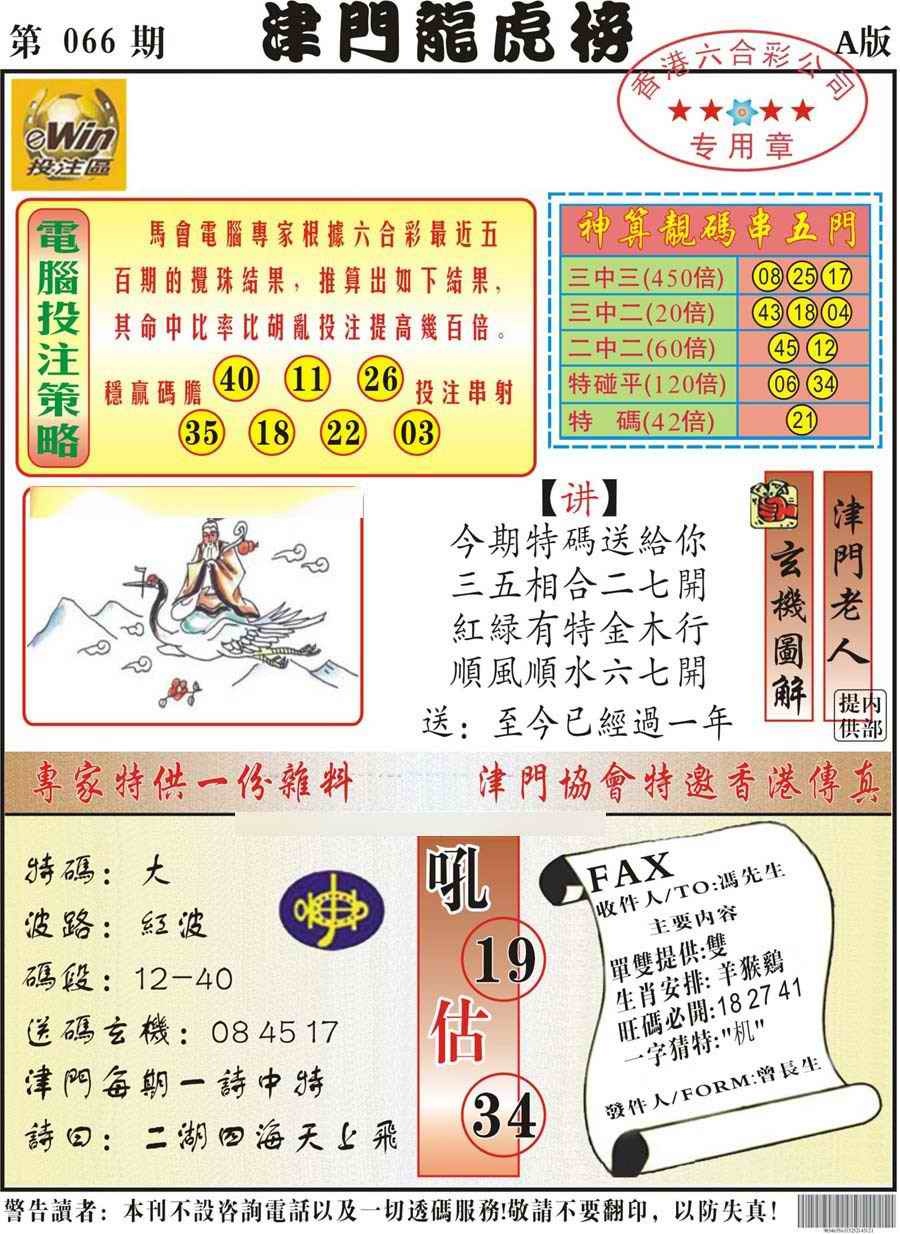 第 066 期
津門龍虎榜
A版
香港六合彩公司
专用章
eWin
投注區
電腦投注策略
馬會電腦專家根據六合彩最近五
百期的攪珠結果，推算出如下結果，
其命中比率比胡亂投注提高幾百倍。
穩贏碼膽 40 11 26 投注串射
35 18 22 03
神算靚碼串五門
三中三(450倍) 08 25 17
三中二(20倍) 43 18 04
二中二(60倍) 45 12
特碰平(120倍) 06 34
特 碼(42倍) 21
【讲】
今期特碼送給你
三五相合二七開
紅緑有特金木行
順風順水六七開
送：至今已經過一年
玄機圖解
津門老人
内部提供
專家特供一份雜料
津門協會特邀香港傳真
特碼：大
波路：紅波
碼段：12－40
送碼玄機：08 45 17
津門每期一詩中特
詩曰：二湖四海天上飛
吼
19
估
34
FAX
收件人/TO:馮先生
主要内容
單雙提供:雙
生肖安排:羊猴鷄
旺碼必開:18 27 41
一字猜特:"机"
發件人/FORM:曾長生
警告讀者：本刊不設咨詢電話以及一切透碼服務!敬請不要翻印，以防失真!